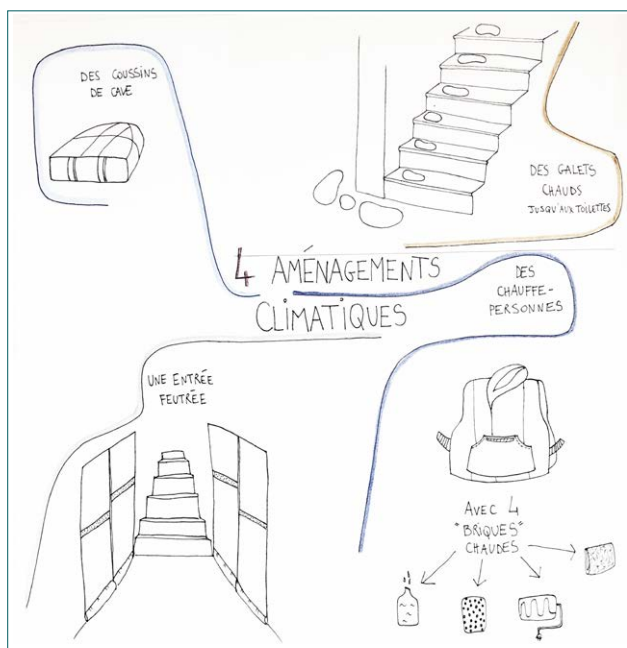 DES COUSSINS
DE CAVE
DES GALETS
CHAUDS
JUSQU'AUX TOILETTES
4 AMÉNAGEMENTS
CLIMATIQUES
DES
CHAUFFE-
PERSONNES
UNE ENTRÉE
FEUTRÉE
AVEC 4
"BRIQUES"
CHAUDES